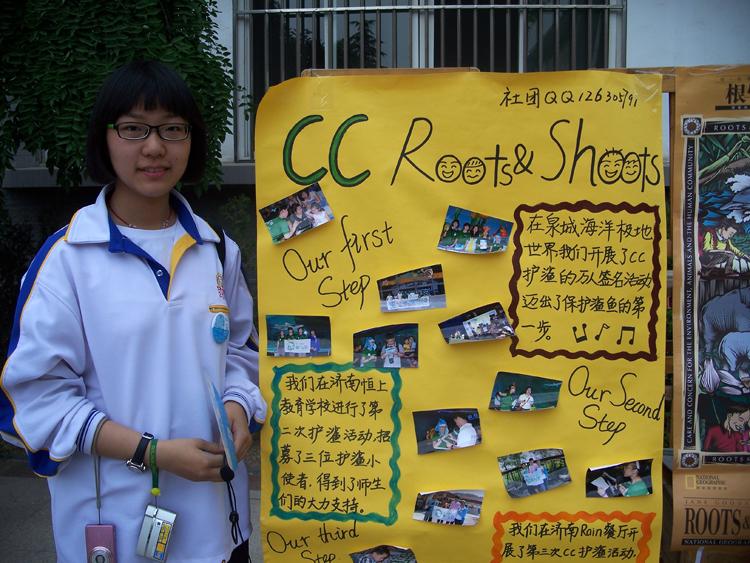 社团QQ126305791
CC Roots & Shoots
Our first
Step
在泉城海洋极地
世界我们开展了CC
护鲨的万人签名活动
迈出了保护鲨鱼的第
一步。
我们在济南恒上
教育学校进行了第
二次护鲨活动,招
募了三位护鲨小
使者,得到了师生
们的大力支持。
Our Second
Step
Our third
Step
我们在济南Rain餐厅开
展了第三次CC护鲨活动,
根
ROOTS
CARE AND CONCERN FOR THE ENVIRONMENT, ANIMALS AND THE HUMAN COMMUNITY
NATIONAL GEOGRAPHIC
ROOTS &
NATIONAL GEOGRA